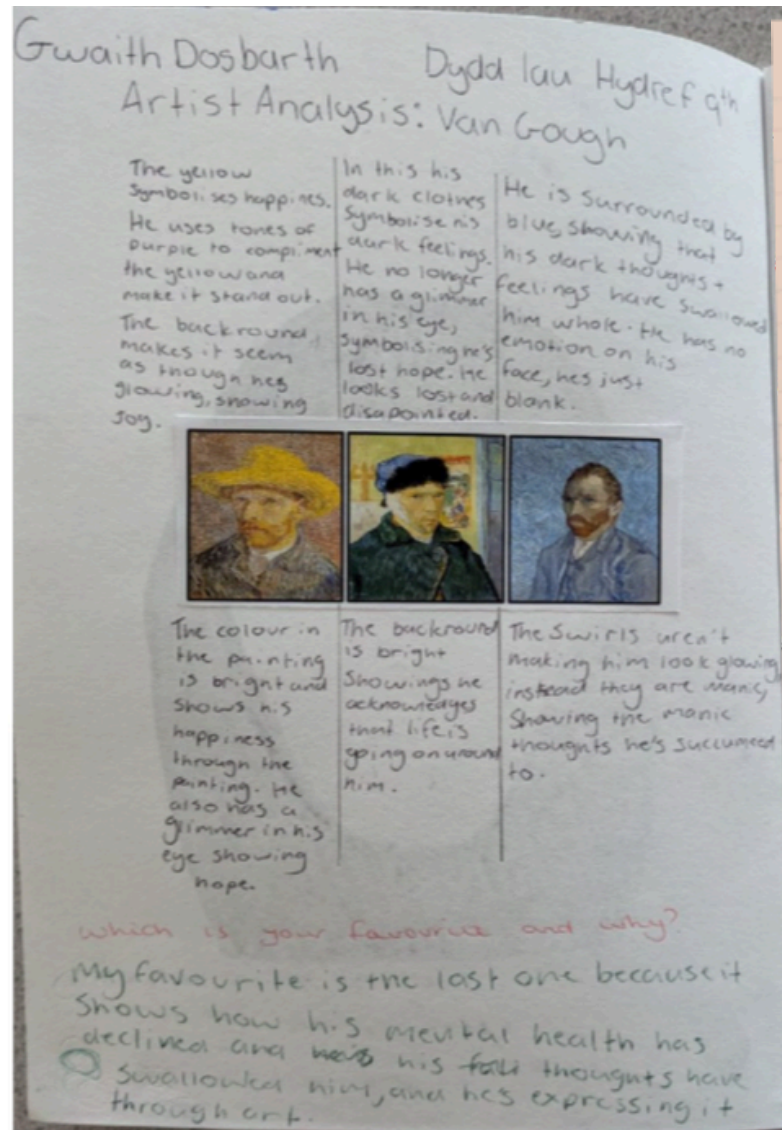 Gwaith Dosbarth
Dydd Iau Hydref 9th
Artist Analysis: Van Gough
The yellow
symbolises happines.
He uses tones of
purple to compliment
the yellow and
make it stand out.
The backround
makes it seem
as though hes
glowing, showing
joy.
In this his
dark clothes
symbolise his
dark feelings.
He no longer
has a glimmer
in his eye,
symbolising he's
lost hope. He
looks lost and
disapointed.
He is surrounded by
blue, showing that
his dark thoughts +
feelings have swallowed
him whole. He has no
emotion on his
face, hes just
blank.
The colour in
the painting
is bright and
shows his
happiness
through the
painting. He
also has a
glimmer in his
eye showing
hope.
The backround
is bright
showings he
acknowledges
that life is
going on around
him.
The swirls aren't
making him look glowing,
instead they are manic,
showing the manic
thoughts he's succumed
to.
which is your favourite and why?
My favourite is the last one because it
shows how his mental health has
declined and his thoughts have
swallowed him, and he's expressing it
through art.